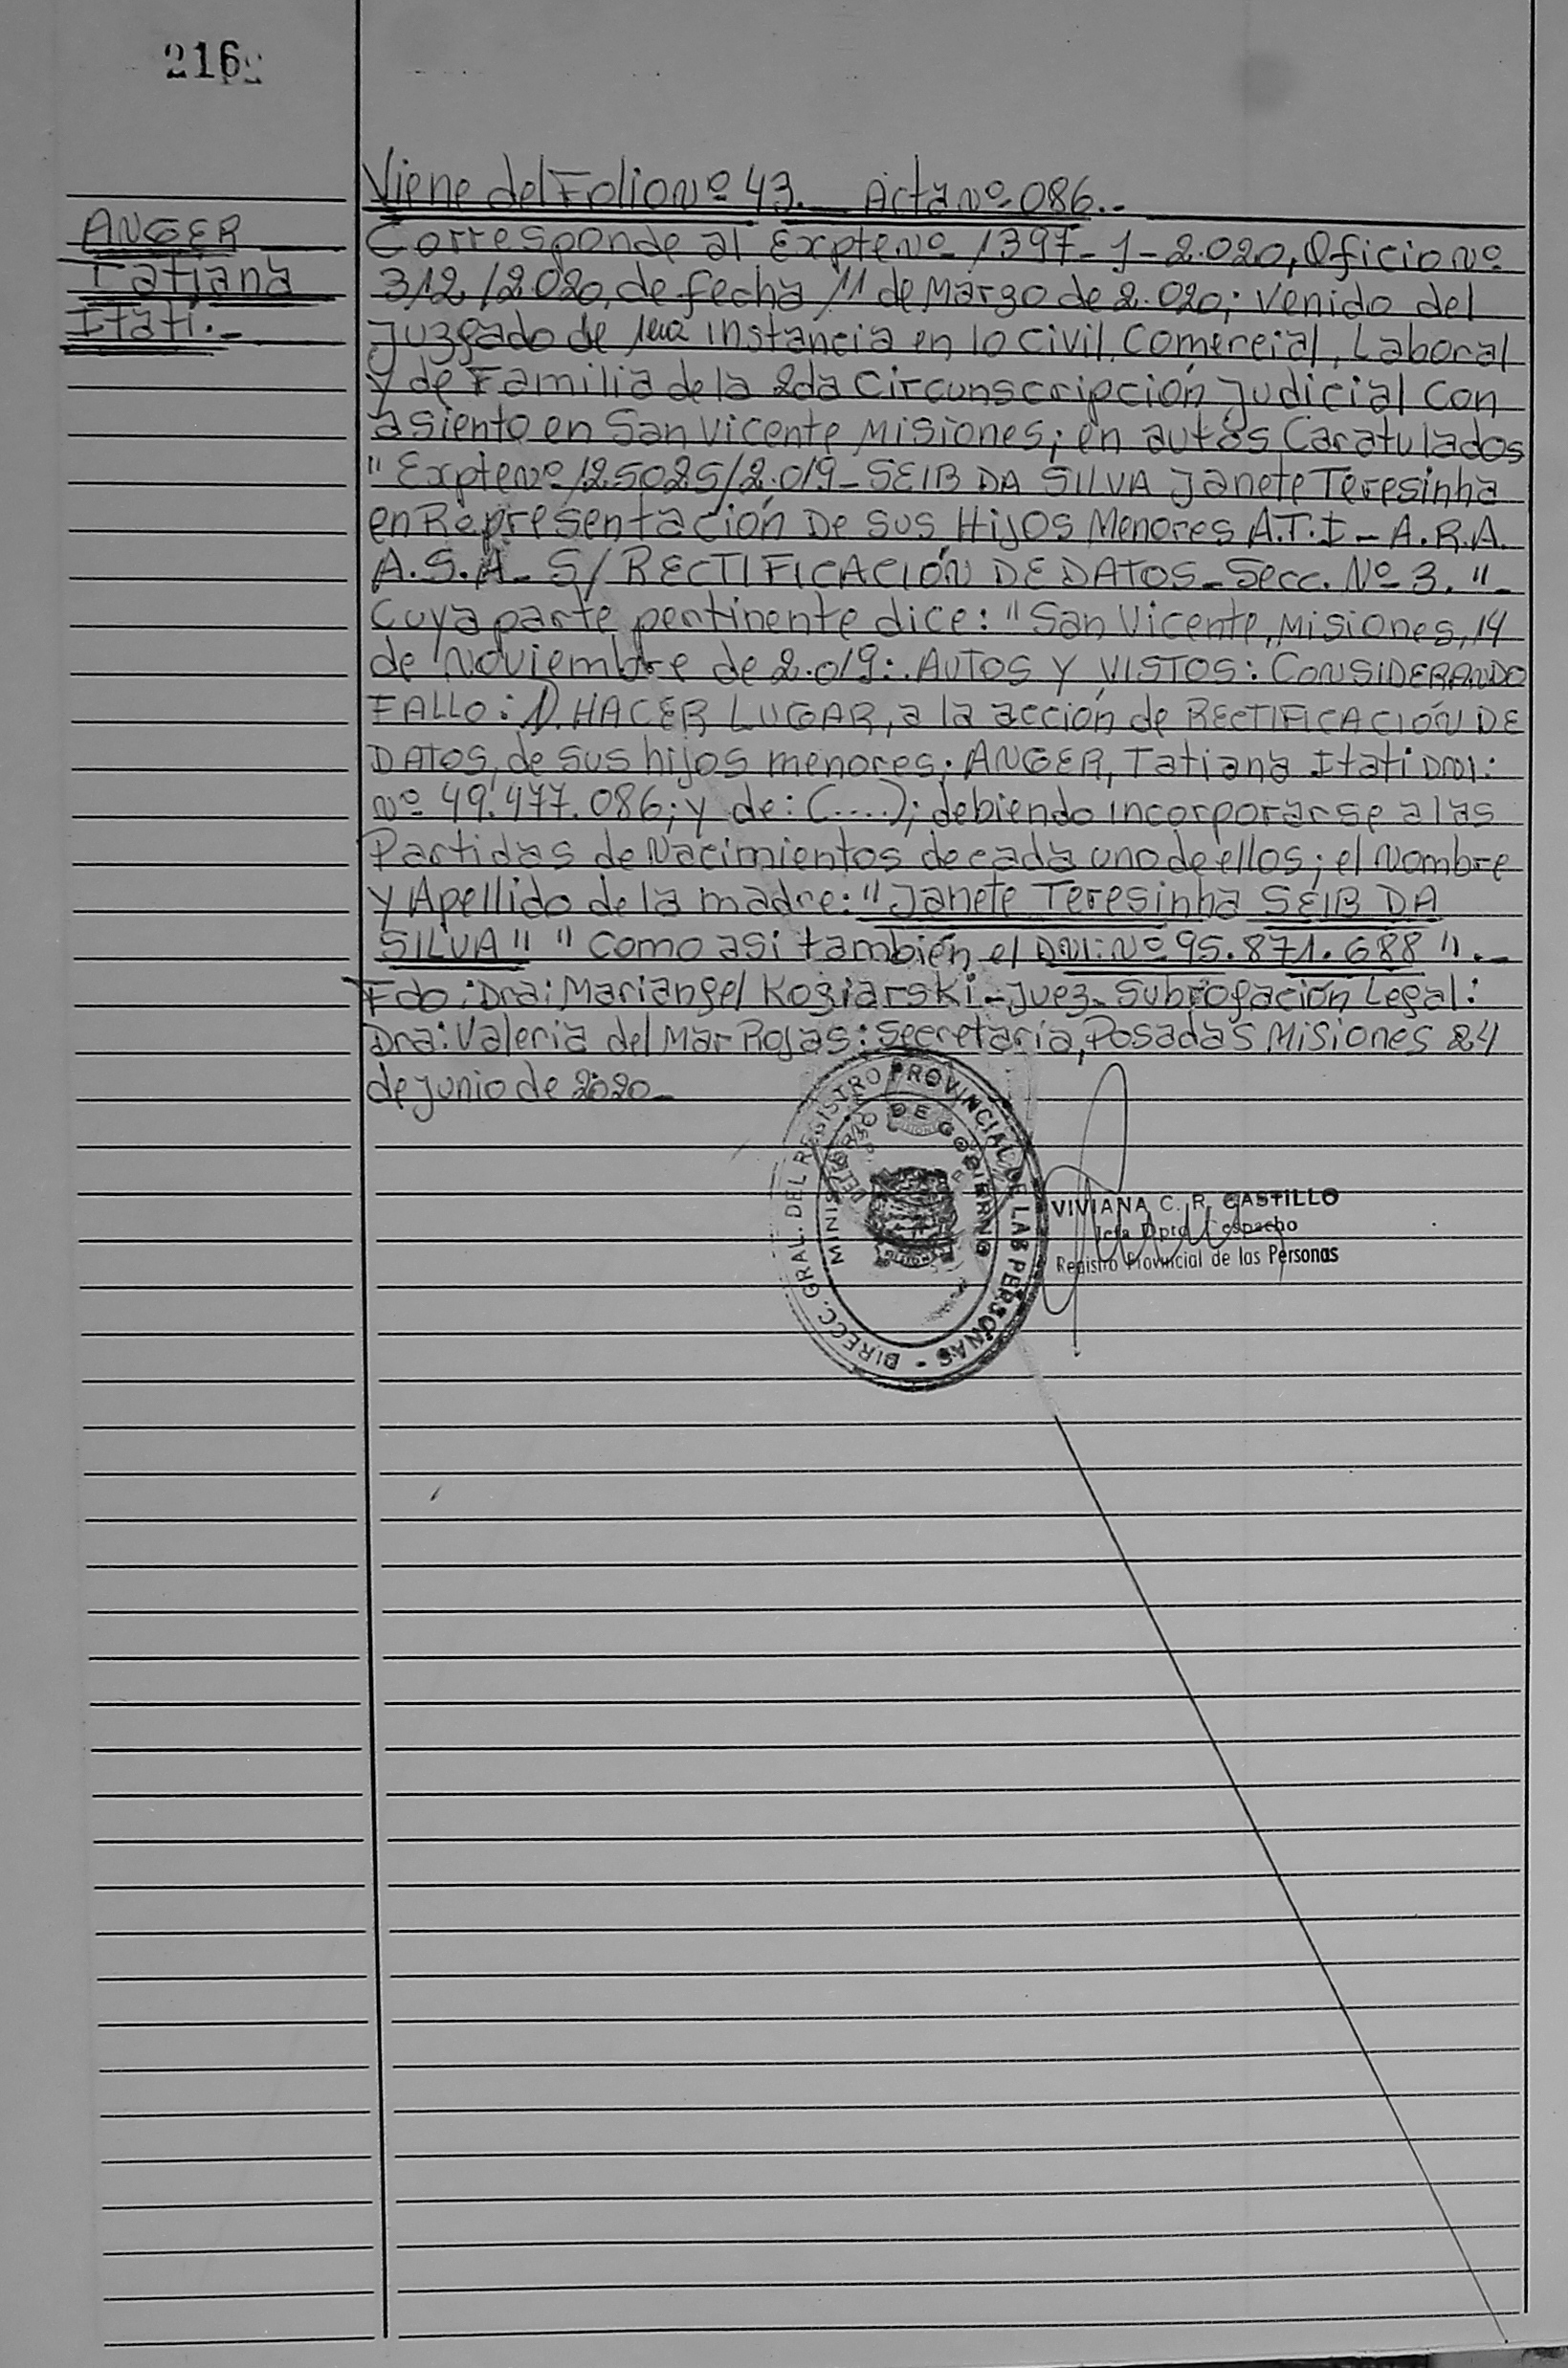 216
Viene del Folio Nº 43. Acta Nº 086.-
ANGER
Tatiana
Itatí.-
Corresponde al Expte Nº 1397-J-2.020, Oficio Nº
312/2020, de fecha 11 de Marzo de 2.020; Venido del
Juzgado de 1era instancia en lo Civil, Comercial, Laboral
y de Familia de la 2da Circunscripción Judicial Con
asiento en San Vicente Misiones; en autos Caratulados
"Expte Nº 125025/2.019- SEIB DA SILVA Janete Teresinha
en Representación De Sus Hijos Menores A.T.I - A.R.A.
A.S.A- S/ RECTIFICACIÓN DE DATOS- Secc. Nº 3."-
Cuya parte pertinente dice: "San Vicente, Misiones, 14
de Noviembre de 2.019: AUTOS Y VISTOS: CONSIDERANDO
FALLO: 1) HACER LUGAR, a la acción de RECTIFICACIÓN DE
DATOS, de sus hijos menores; ANGER, Tatiana Itati DNI:
Nº 49.477.086; y de: (....); debiendo incorporarse a las
Partidas de Nacimientos de cada uno de ellos; el Nombre
y Apellido de la madre: "Janete Teresinha SEIB DA
SILVA" " Como asi también el DNI: Nº 95.871.688".-
Fdo: Dra: Mariangel Koziarski-Juez- Subrogación Legal:
Dra: Valeria del Mar Rojas: Secretaria, Posadas Misiones 24
de junio de 2020-
DIRECC. GRAL. DEL REGISTRO PROVINCIAL DE LAS PERSONAS -
MINISTERIO DE GOBIERNO
VIVIANA C. R. CASTILLO
Jefa Dpto Despacho
Registro Provincial de las Personas